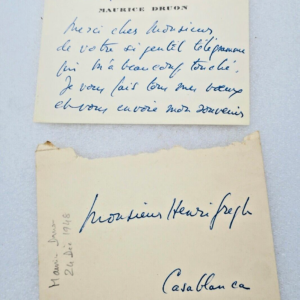 MAURICE DRUON
merci cher Monsieur
de votre si gentil télégramme
qui m'a beaucoup touché.
Je vous fais tous mes vœux
et vous envoie mon souvenir
Monsieur Henri Gregh
Casablanca
Maurice Druon
24 Déc 1948